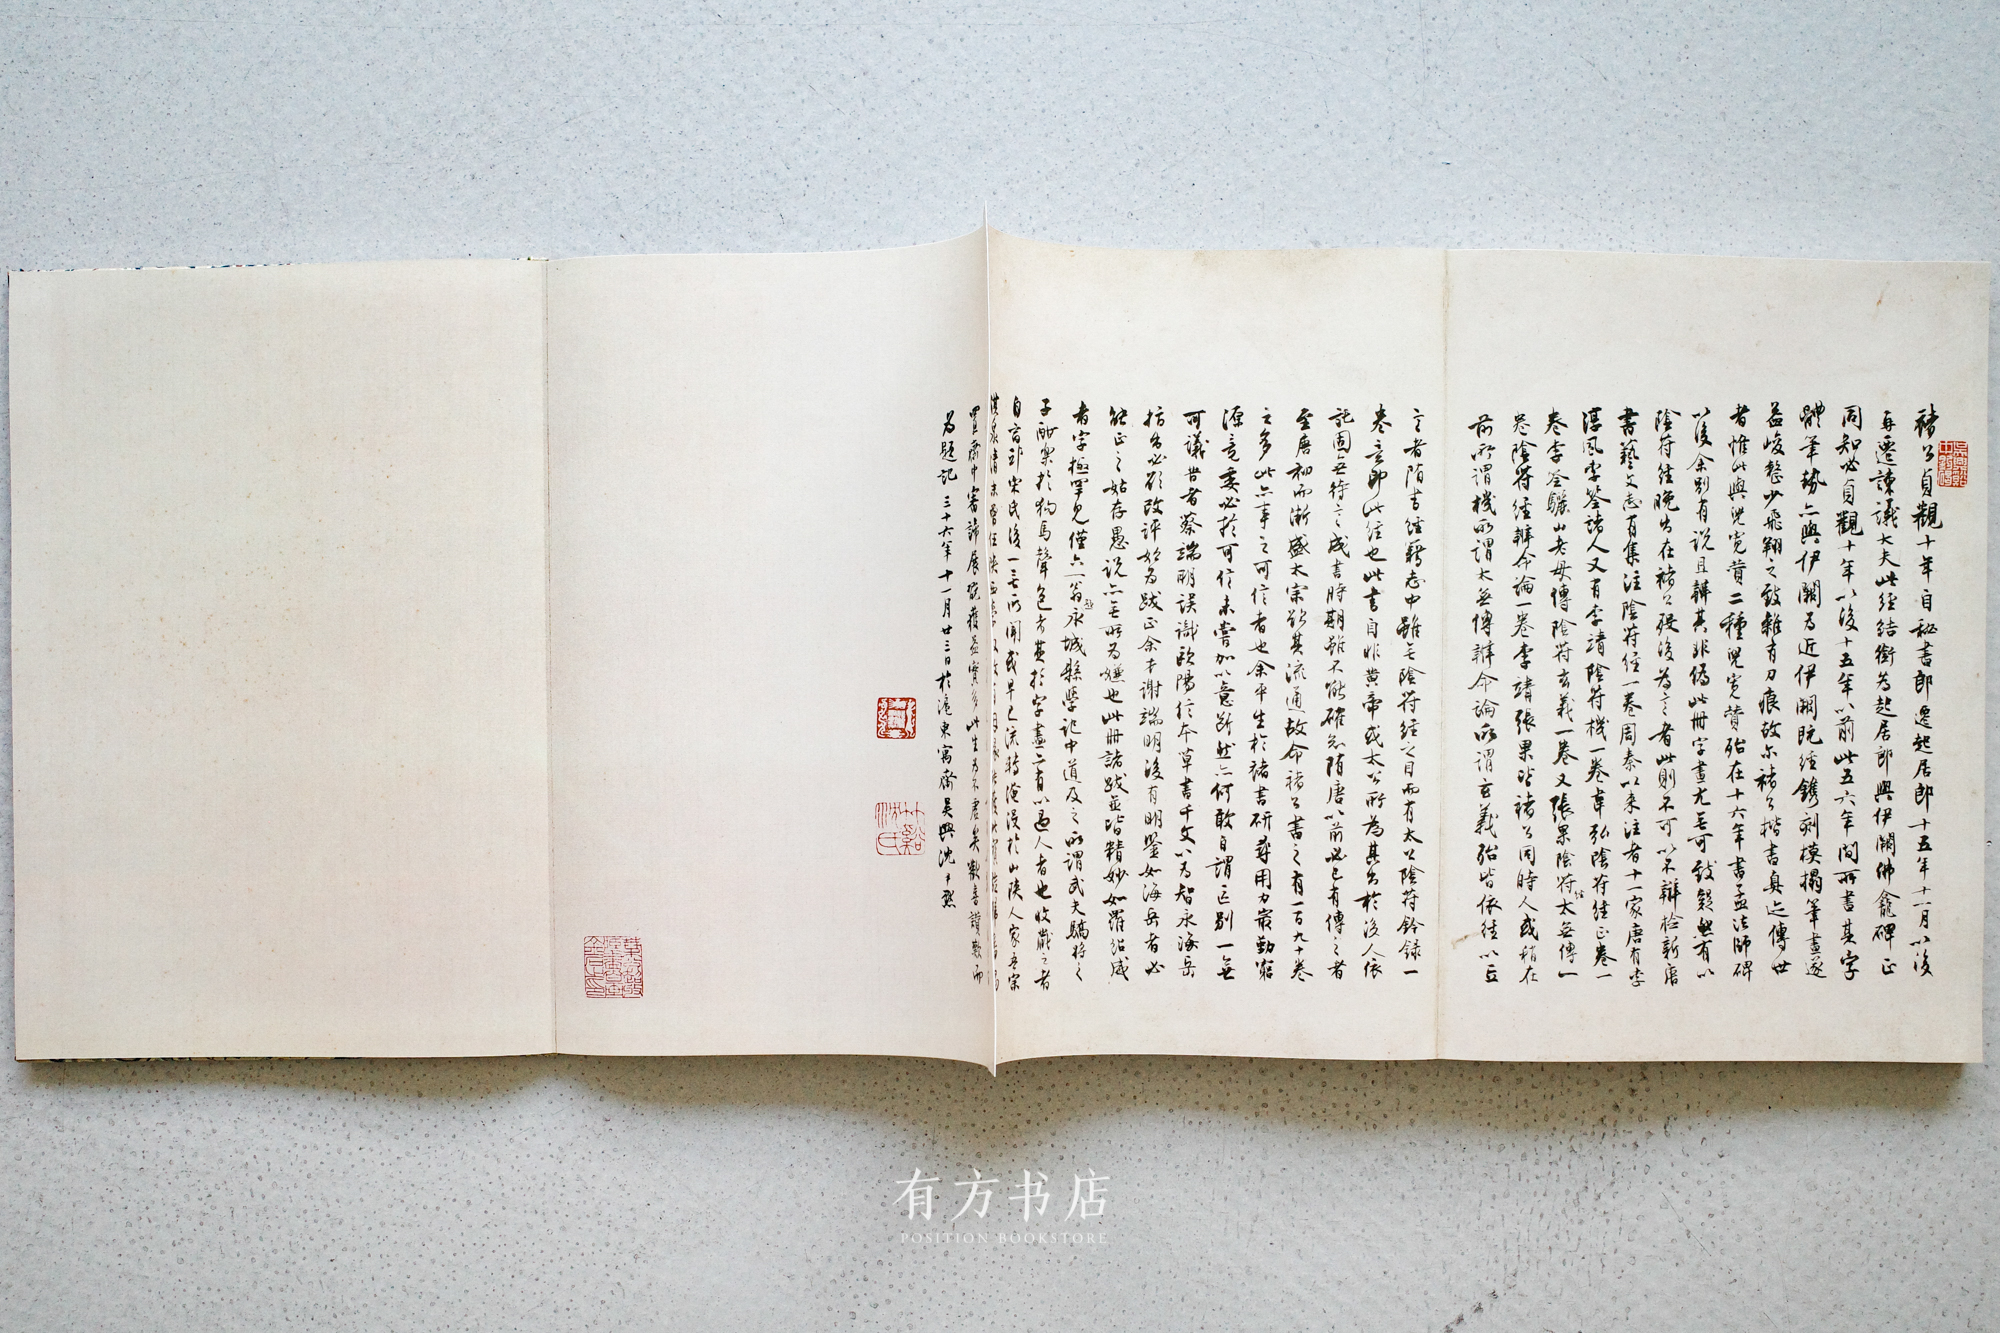 褚公貞觀十年自秘書郎遷起居郎十五年十一月以後
再遷諫議大夫此經結銜為起居郎與伊闕佛龕碑正
同知必貞觀十年以後十五年以前此五六年間所書其字
體筆勢亦與伊闕為近伊闕既經鐫刻模搨筆畫遂
益峻整少飛翔之致雜有刀痕故尔褚公楷書真迹傳世
者惟此與兒寬贊二種兒寬贊殆在十六年書孟法師碑
以後余別有說且辨其非偽此冊字畫尤無可致疑然有以
陰符經晚出在褚公歿後為言者此則不可以不辯檢新唐
書藝文志有集注陰符經一卷周秦以來注者十一家唐有李
淳風李筌諸人又有李靖陰符機一卷韋弘陰符經正卷一
卷李筌驪山老母傳陰符玄義一卷又張果陰符太無傳一
卷陰符經辨命論一卷李靖張果皆褚公同時人或稍在
前所謂機所謂太無傳辨命論所謂玄義殆皆依經以立
言者隋書經籍志中雖無陰符經之目而有太公陰符鈐錄一
卷意即此經也此書自非黃帝或太公所為其出於後人依
託固無待言成書時期雖不能確知隋唐以前必已有傳之者
至唐初而漸盛太宗欲其流通故命褚公書之有一百九十卷
之多此亦事之可信者也余平生於褚書研尋用力最勤窮
源竟委必於可信未嘗加以意斷然亦何敢自謂區別一無
可議昔者蔡端明誤識歐陽信本草書千文以為智永海岳
指出必欲改評始為跋正余未謝端明後有明鑒如海岳者必
能正之姑存愚說亦無所為嫌也此冊諸跋並皆精妙如羅紹威
者字極罕見僅六一翁永城縣學記中道及之所謂武夫驕將之
子酣樂於狗馬聲色者其於字畫亦有以過人者也收藏之者
自言刻宋氏後一無所聞或早已流轉淹沒於山陝人家吾宗
淇泉清末曾任陝西
實齋中審諦展玩獲益實多此生為不虛矣歡喜讚歎而
為題記 三十六年十一月廿三日於滬東寓齋吳興沈尹默
竹谿
沈氏
有方书店
POSITION BOOKSTORE